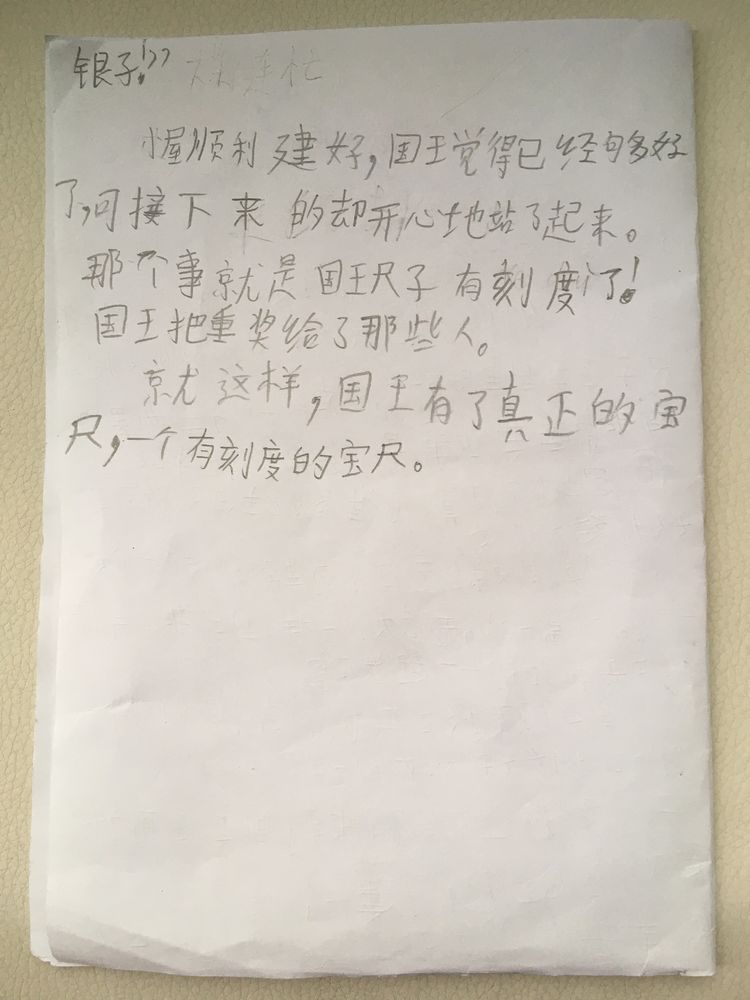 银子!”
小屋顺利建好,国王觉得已经够多好
了,可接下来的却开心地站了起来。
那个事就是国王尺子有刻度了!
国王把重奖给了那些人。
就这样,国王有了真正的宝
尺,一个有刻度的宝尺。